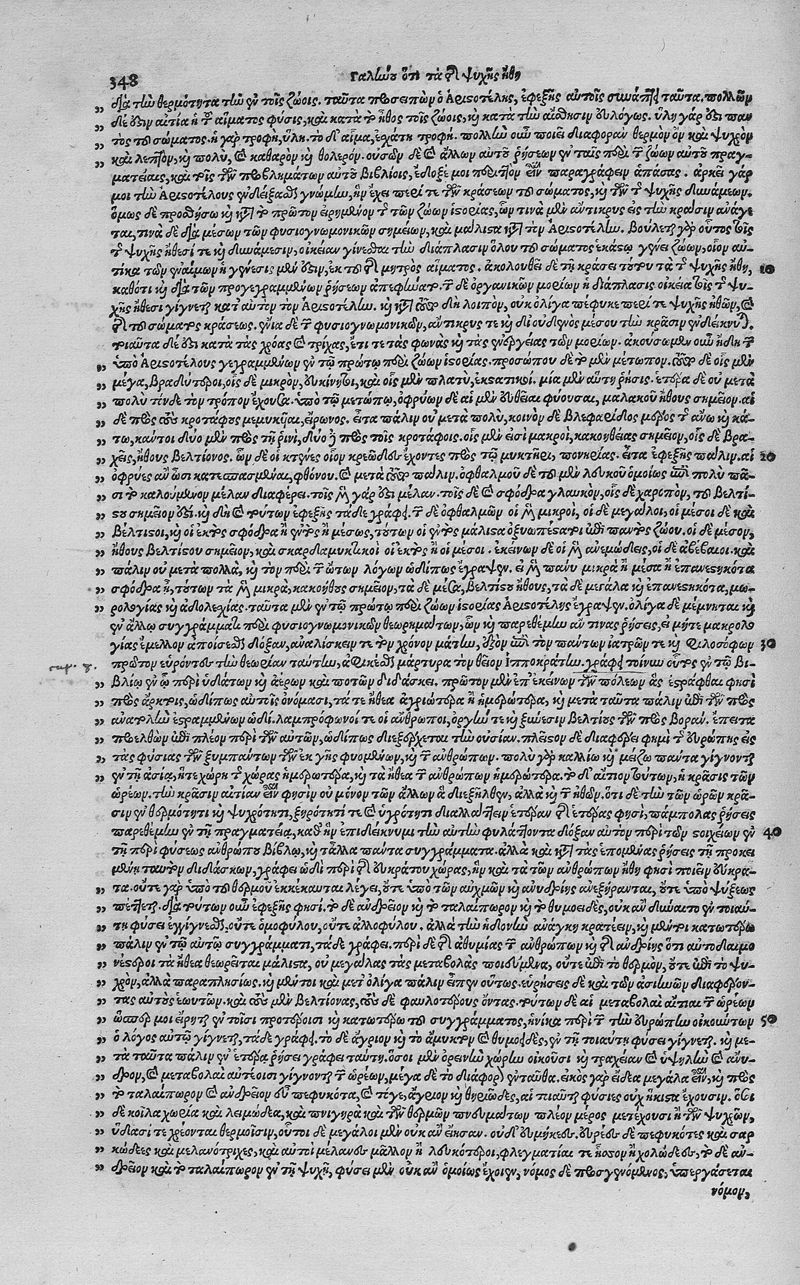 348 Γαληνοῦ ὅτι τὰ τῆς ψυχῆς ἤθη
διὰ τὴν θερμότητα τὴν ἐν τοῖς ζώοις. ταῦτα προσειπὼν ὁ Ἀριστοτέλης, ἐφεξῆς αὐτοῖς συνάπτει ταῦτα. πολλῶν
δέ ἐστιν αἰτία ἡ τοῦ αἵματος φύσις, καὶ κατὰ τὸ ἦθος τοῖς ζώοις, καὶ κατὰ τὴν αἴσθησιν εὐλόγως. ὕλη γάρ ἐστι παν
τὸς τοῦ σώματος. ἡ γὰρ τροφὴ, ὕλη. τὸ δ' αἷμα, ἐσχάτη τροφή. πολλὴν οὖν ποιεῖ διαφορὰν θερμὸν ὂν καὶ ψυχρὸν
καὶ λεπτὸν, καὶ πολὺ, καὶ καθαρὸν καὶ θολερόν. οὐσῶν δὲ καὶ ἄλλων αὐτοῦ ῥήσεων ἐν ταῖς περὶ τῶν ζώων αὐτοῦ πραγ-
ματείαις, καὶ τοῖς τῶν προβλημάτων αὐτοῦ βιβλίοις, ἔδοξέ μοι περιττὸν εἶναι παραγράφειν ἁπάσας. ἀρκεῖ γάρ
μοι τὴν Ἀριστοτέλους ἐνδείξασθαι γνώμην, ἣν ἔχει περί τε τῶν κράσεων τοῦ σώματος, καὶ τῶν τῆς ψυχῆς δυνάμεων.
ὅμως δὲ προσθήσω καὶ κατὰ τὸ πρῶτον εἰρημένον τῶν τῶν ζώων ἱστορίας, ὧν τινὰ μὲν ἄντικρυς εἰς τὴν κρᾶσιν ἀνάγε
ται, τινὰ δὲ διὰ μέσων τῶν φυσιογνωμονικῶν σημείων, καὶ μάλιστα κατὰ τὸν Ἀριστοτέλην. βούλεται γὰρ οὗτος τοῖς
τῆς ψυχῆς ἤθεσί τε καὶ δυνάμεσιν, οἰκείαν γίνεσθαι τὴν διάπλασιν ὅλου τοῦ σώματος ἑκάστῳ γένει ζώων, οἷον αὐ-
τίκα τῶν ἐναίμων ἡ γένεσις μέν ἐστιν, ἐκ τοῦ τῆς μητρὸς αἵματος. ἀκολουθεῖ δὲ τῇ κράσει τούτου τὰ τῆς ψυχῆς ἤθη, 10
καθότι καὶ διὰ τῶν προγεγραμμένων ῥήσεων ἀπεφήνατο. τῶν δὲ ὀργανικῶν μορίων ἡ διάπλασις οἰκεία τοῖς τῆς ψυ-
χῆς ἤθεσι γίγνεται κατ' αὐτὸν τὸν Ἀριστοτέλην. καὶ κατὰ τοῦτο δὴ λοιπὸν, οὐκ ὀλίγα πέφυκε περί τε ψυχῆς ἠθῶν, καὶ
τῆς τοῦ σώματος κράσεως. ἔνια δὲ τῶν φυσιογνωμονικῶν, ἄντικρύς τε καὶ δι' οὐδενὸς μέσου τὴν κρᾶσιν ἐνδείκνυται.
τοιαῦτα δέ ἐστι κατὰ τὰς χρόας καὶ τρίχας, ἔτι τε τὰς φωνὰς καὶ τὰς ἐνεργείας τῶν μορίων. ἀκούσωμεν οὖν ἤδη τῶν
ὑπὸ Ἀριστοτέλους γεγραμμένων ἐν τῷ πρώτῳ περὶ ζώων ἱστορίας. προσώπου δὲ τὸ μὲν μέτωπον. τοῦτο δὲ οἷς μὲν
μέγα, βραδύτεροι, οἷς δὲ μικρὸν, εὐκίνητοι, καὶ οἷς μὲν πλατὺ, ἐκστατικοί. μία μὲν αὕτη ῥῆσις. ἑτέρα δὲ οὐ μετὰ
πολὺ τόνδε τὸν τρόπον ἔχουσα. ὑπὸ τῷ μετώπῳ, ὀφρύων δὲ αἱ μὲν εὐθεῖαι φύουσαι, μαλακοῦ ἤθους σημεῖον. αἱ
δὲ πρὸς τοὺς κροτάφους μεμυκῆαι, εἴρωνος. εἶτα πάλιν οὐ μετὰ πολὺ, κοινὸν δὲ βλεφαρίδος μέρος τοῦ ἄνω καὶ κά-
τω, κανθοὶ δύο μὲν πρὸς τῇ ῥινὶ, δύο δὲ πρὸς τοῖς κροτάφοις. οἷς μέν εἰσι μακροὶ, κακοηθείας σημεῖον, οἷς δὲ βρα-
χεῖς, ἤθους βελτίονος. ὧν δὲ οἱ κτένες οἷον κρεῶδες ἔχοντες πρὸς τῷ μυκτῆρι, πονηρίας. εἶτα ἐφεξῆς πάλιν. αἱ 20
ὀφρύες ἂν ὦσι κατεσπασμέναι, φθόνου. καὶ μετὰ τοῦτο πάλιν. ὀφθαλμοῦ δὲ τὸ μὲν λευκὸν ὁμοίως ἐπὶ πολὺ πᾶ-
σι τὸ καλούμενον μέλαν διαφέρει. τοῖς μὲν γάρ ἐστι μέλαν. τοῖς δὲ καὶ σφόδρα γλαυκὸν, οἷς δὲ χαροπὸν, τοῦ βελτί-
στου σημεῖόν ἐστι. καὶ δὴ καὶ τούτων ἐφεξῆς τάδε γράφει. τῶν δὲ ὀφθαλμῶν οἱ μὲν μικροὶ, οἱ δὲ μεγάλοι, οἱ μέσοι δὲ καὶ
βέλτιστοι, καὶ οἱ ἐκτὸς σφόδρα ἢ ἐντὸς ἢ μέσως, τούτων οἱ ἐντὸς μάλιστα ὀξυωπέστατοι ἐπὶ παντὸς ζώου. οἱ δὲ μέσον,
ἤθους βελτίστου σημεῖον, καὶ σκαρδαμυκτικοὶ οἱ ἐκτὸς ἢ οἱ μέσοι. ἐκείνων δὲ οἱ μὲν ἀνεμώδεις, οἱ δὲ ἀβέβαιοι. καὶ
πάλιν οὐ μετὰ πολλὰ, κατὰ τὸν περὶ τῶν ὤτων λόγων ὡδίπως ἔγραψεν. εἰ μὲν πάνυ μικρὰ ἢ μέσα ἢ ἐπανεστηκότα
σφόδρα ἢ, τούτων τὰ μὲν μικρὰ, κακοήθους σημεῖον, τὰ δὲ μέσα, βελτίστου ἤθους, τὰ δὲ μεγάλα καὶ ἐπανεστηκότα, μω-
ρολογίας καὶ ἀδολεσχίας. ταῦτα μὲν ἐν τῷ πρώτῳ περὶ ζώων ἱστορίας Ἀριστοτέλης ἔγραψεν. ὀλίγα δὲ μέμνηται καὶ
ἐν ἄλλῳ συγγράμματι περὶ φυσιογνωμονικῶν θεωρημάτων, ὧν καὶ παρεθέμην ἄν τινας ῥήσεις, εἰ μήτε μακρολο
γίας ἔμελλον ἀποίσεσθαι δόξαν, ἀναλίσκειν τε τὸν χρόνον μάτην, ἐξὸν ἐπὶ τὸν πάντων ἰατρῶν τε καὶ φιλοσόφων 30
πρῶτον εὑρόντος τὴν θεωρίαν ταύτην, ἀφικέσθαι μάρτυρα τὸν θεῖον Ἱπποκράτην. γράφει τοίνυν οὗτος ἐν τῷ βι-
βλίῳ ἐν ᾧ περὶ ὑδάτων καὶ ἀέρων καὶ τόπων διδάσκει. πρῶτον μὲν ἐπ' ἐκείνων τῶν πόλεων ἃς ἐστράφθαι φησὶ
πρὸς ἄρκτον, ὡδίπως αὐτοῖς ὀνόμασι, τά τε ἤθεα ἀγριώτερα ἢ ἡμερώτερα, καὶ μετὰ ταῦτα πάλιν ἐπὶ τῶν πρὸς
ἀνατολὴν ἐστραμμένων ὡδί. λαμπρόφωνοί τε οἱ ἄνθρωποι, ὀργήν τε καὶ ξύνεσιν βελτίους τῶν πρὸς βορᾶν. ἔπειτα
προελθὼν ἐπὶ πλέον περὶ τῶν αὐτῶν, ὡδίπως διεξέρχεται τὴν οὐσίαν. πλεῖστον δὲ διαφέρει φημὶ τῆς εὐρώπης εἰς
τὰς φύσιας τῶν ξυμπάντων τῶν ἐκ γῆς φυομένων, καὶ τῶν ἀνθρώπων. πολὺ γὰρ καλλίω καὶ μείζω πάντα γίγνονται
ἐν τῇ ἀσίᾳ, ἥ τε χώρη τῆς χώρας ἡμερωτέρα, καὶ τὰ ἤθεα τῶν ἀνθρώπων ἡμερώτερα. τὸ δ' αἴτιον τούτων, ἡ κρᾶσις τῶν
ὡρέων. τὴν κρᾶσιν αἰτίαν εἶναί φησιν οὐ μόνον τῶν ἄλλων ἃ διεξῆλθεν, ἀλλὰ καὶ τῶν ἠθῶν. ὅτι δὲ τὴν τῶν ὡρῶν κρᾶ-
σιν ἐν θερμότητι καὶ ψυχρότητι, ξηρότητί τε καὶ ὑγρότητι διαλλάττειν ἑτέραν τῆς ἑτέρας φησὶ, πάμπολας ῥήσεις
παρεθέμην ἐν τῇ πραγματείᾳ, καθ' ἣν ἐπιδείκνυμι τὴν αὐτὴν φυλάττοντα δόξαν αὐτὸν περὶ τῶν στοιχείων ἐν 40
τῇ περὶ φύσεως ἀνθρώπου βίβλῳ, καὶ τἄλλα πάντα συγγράμματα. ἀλλὰ καὶ κατὰ τὰς ἑπομένας ῥήσεις τῇ προκει
μένῃ ταυτὸν διδάσκων, γράφει ὡδὶ περὶ τῆς εὐκράτου χώρας, ἣν καὶ τὰ τῶν ἀνθρώπων ἤθη φησὶ ποιεῖν εὔκρα-
τα. οὔτε γὰρ ὑπὸ τοῦ θερμοῦ ἐκκέκαυται λέγει, οὔτε ὑπὸ τῶν αὐχμῶν καὶ ἀνυδρίης ἀνεξήρανται, οὔτε ὑπὸ ψύξεως
πέπηται. διὰ τούτων οὖν ἐφεξῆς φησί. τὸ δὲ ἀνδρεῖον καὶ τὸ ταλαίπωρον καὶ τὸ θυμοειδὲς, οὐκ ἂν δύναιτο ἐν τοιαύ-
τῃ φύσει ἐγγίγνεσθαι, οὔτε ὁμοφύλου, οὔτε ἀλλοφύλου. ἀλλὰ τὴν ἡδονὴν ἀνάγκη κρατέειν. καὶ μέντοι κατωτέρω
πάλιν ἐν τῷ αὐτῷ συγγράμματι, τάδε γράφει. περὶ δὲ τῆς ἀθυμίας τῶν ἀνθρώπων καὶ τῆς ἀνδρίης ὅτι αὐτοδαιμο
νέστεροι τὰ ἤθεα θεωρεῖται μάλιστα, οὐ μεγάλας τὰς μεταβολὰς ποιεύμενα, οὔτε ἐπὶ τὸ θερμὸν, οὔτε ἐπὶ τὸ ψυ-
χρὸν, ἀλλὰ παραπλησίως. καὶ μέντοι καὶ μετ' ὀλίγα πάλιν εἶπεν οὕτως. εὑρήσεις δὲ καὶ τῶν ἀσιηνῶν διαφέρον-
τας αὐτοὺς ἑωυτῶν. καὶ τοὺς μὲν βελτίονας, τοὺς δὲ φαυλοτέρους ὄντας. τούτων δὲ αἱ μεταβολαὶ αἴτιαι τῶν ὡρέων
ὥσπερ μοι εἴρηται ἐν τοῖσι προτέροισι καὶ κατωτέρω τοῦ συγγράμματος, ἡνίκα περὶ τῶν τὴν εὐρώπην οἰκούντων 50
ὁ λόγος αὐτῷ γίγνεται, τάδε γράφει. τό δὲ ἄγριον καὶ τὸ ἄμυκτον καὶ θυμοειδὲς, ἐν τῇ τοιαύτῃ φύσει γίγνεται. καὶ με-
τὰ ταῦτα πάλιν ἐν ἑτέρᾳ ῥήσει γράφει ταύτῃ. ὅσοι μὲν ὀρεινὴν χώρην οἰκοῦσι καὶ τραχεῖαν καὶ ὑψηλὴν καὶ ἄνυ-
δρον, καὶ μεταβολαὶ αὐτέοισι γίγνονται τῶν ὡρέων, μέγα δὲ τὸ διάφορον ἐνταῦθα. εἰκὸς γὰρ εἴδεα μεγάλα εἶναι, καὶ πρὸς
τὸ ταλαίπωρον καὶ ἀνδρεῖον εὖ πεφυκότα, καὶ τό γε, ἄγριον καὶ θηριῶδες, αἱ τοιαῦται φύσιες οὐχ ἥκιστα ἔχουσιν. ὅσοι
δὲ κοῖλα χωρία καὶ λειμώδεα, καὶ πνιγηρὰ καὶ τῶν θερμῶν πνευμάτων πλέον μέρος μετέχουσι ἢ τῶν ψυχρῶν,
ὕδασί τε χρέονται θερμοῖσιν, οὗτοι δὲ μεγάλοι μὲν οὐκ ἂν εἴησαν. οὐδ' εὐμήκεες. εὐρέες δὲ πεφυκότες καὶ σαρ
κώδεες καὶ μελανότριχες, καὶ αὐτοὶ μέλανες μᾶλλον ἢ λευκότεροι, φλεγματίαι τε ἧσσον ἢ χολώδεες, τὸ δὲ ἀν-
δρεῖον καὶ τὸ ταλαίπωρον ἐν τῇ ψυχῇ, φύσει μὲν οὐκ ἂν ὁμοίως ἔχοιεν, νόμος δὲ προσγενόμενος, ὑπεργάσεται
νόμον,